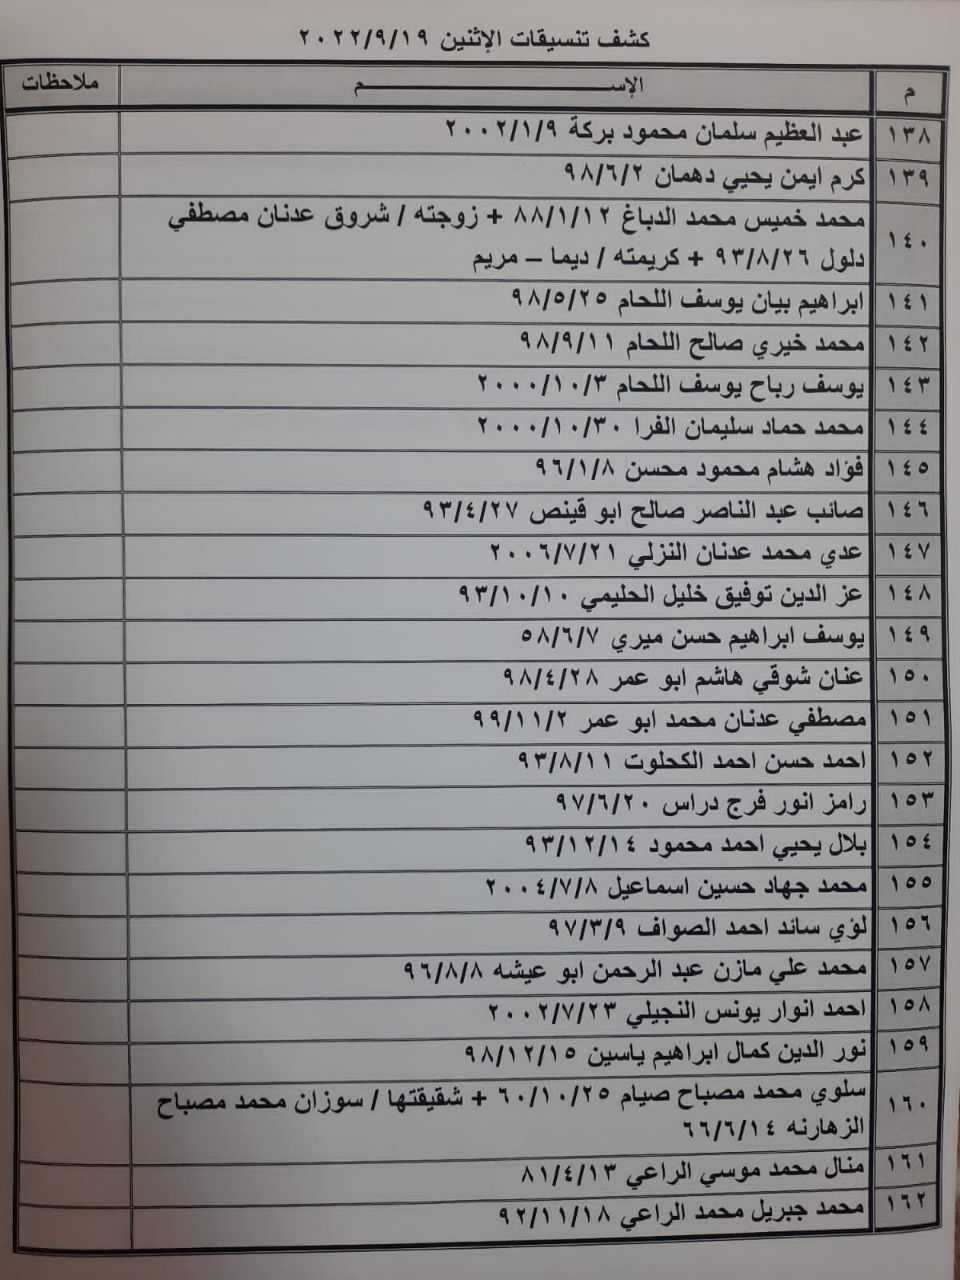 كشف تنسيقات الإثنين ٢٠٢٢/٩/١٩
م الإســـــــم ملاحظات
١٣٨ عبد العظيم سلمان محمود بركة ٢٠٠٢/١/٩
١٣٩ كرم ايمن يحيي دهمان ٩٨/٦/٢
١٤٠ محمد خميس محمد الدباغ ٨٨/١/١٢ + زوجته / شروق عدنان مصطفي
دلول ٩٣/٨/٢٦ + كريمته / ديما – مريم
١٤١ ابراهيم بيان يوسف اللحام ٩٨/٥/٢٥
١٤٢ محمد خيري صالح اللحام ٩٨/٩/١١
١٤٣ يوسف رباح يوسف اللحام ٢٠٠٠/١٠/٣
١٤٤ محمد حماد سليمان الفرا ٢٠٠٠/١٠/٣٠
١٤٥ فؤاد هشام محمود محسن ٩٦/١/٨
١٤٦ صائب عبد الناصر صالح ابو قينص ٩٣/٤/٢٧
١٤٧ عدي محمد عدنان النزلي ٢٠٠٦/٧/٢١
١٤٨ عز الدين توفيق خليل الحليمي ٩٣/١٠/١٠
١٤٩ يوسف ابراهيم حسن ميري ٥٨/٦/٧
١٥٠ عنان شوقي هاشم ابو عمر ٩٨/٤/٢٨
١٥١ مصطفي عدنان محمد ابو عمر ٩٩/١١/٢
١٥٢ احمد حسن احمد الكحلوت ٩٣/٨/١١
١٥٣ رامز انور فرج دراس ٩٧/٦/٢٠
١٥٤ بلال يحيي احمد محمود ٩٣/١٢/١٤
١٥٥ محمد جهاد حسين اسماعيل ٢٠٠٤/٧/٨
١٥٦ لؤي سائد احمد الصواف ٩٧/٣/٩
١٥٧ محمد علي مازن عبد الرحمن ابو عيشه ٩٦/٨/٨
١٥٨ احمد انوار يونس النجيلي ٢٠٠٢/٧/٢٣
١٥٩ نور الدين كمال ابراهيم ياسين ٩٨/١٢/١٥
١٦٠ سلوي محمد مصباح صيام ٦٠/١٠/٢٥ + شقيقتها / سوزان محمد مصباح
الزهارنه ٦٦/٦/١٤
١٦١ منال محمد موسي الراعي ٨١/٤/١٣
١٦٢ محمد جبريل محمد الراعي ٩٢/١١/١٨